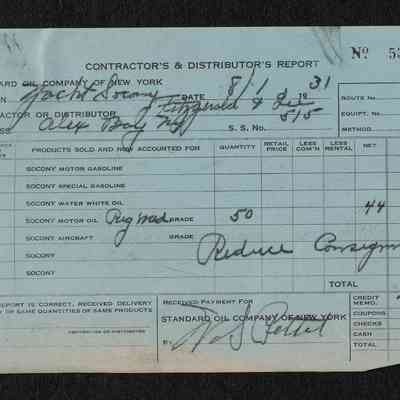 CONTRACTOR'S & DISTRIBUTOR'S REPORT
Nº 53
ARD OIL COMPANY OF NEW YORK
N Yacht Socony DATE 8/1 1931
ROUTE NO.
ACTOR OR DISTRIBUTOR Fitzgerald & Lee
EQUIPT. NO.
SS Alex Bay NY S. S. NO. 515
METHOD
PRODUCTS SOLD AND NOW ACCOUNTED FOR QUANTITY RETAIL PRICE LESS COM'N LESS RENTAL NET
SOCONY MOTOR GASOLINE
SOCONY SPECIAL GASOLINE
SOCONY WATER WHITE OIL
SOCONY MOTOR OIL GRADE 50 44
SOCONY AIRCRAFT GRADE
SOCONY Reduce Consignm
SOCONY
TOTAL
REPORT IS CORRECT, RECEIVED DELIVERY
Y OF SAME QUANTITIES OF SAME PRODUCTS
CONTRACTOR OR DISTRIBUTOR
RECEIVED PAYMENT FOR
STANDARD OIL COMPANY OF NEW YORK
BY
CREDIT MEMO.
COUPONS
CHECKS
CASH
TOTAL